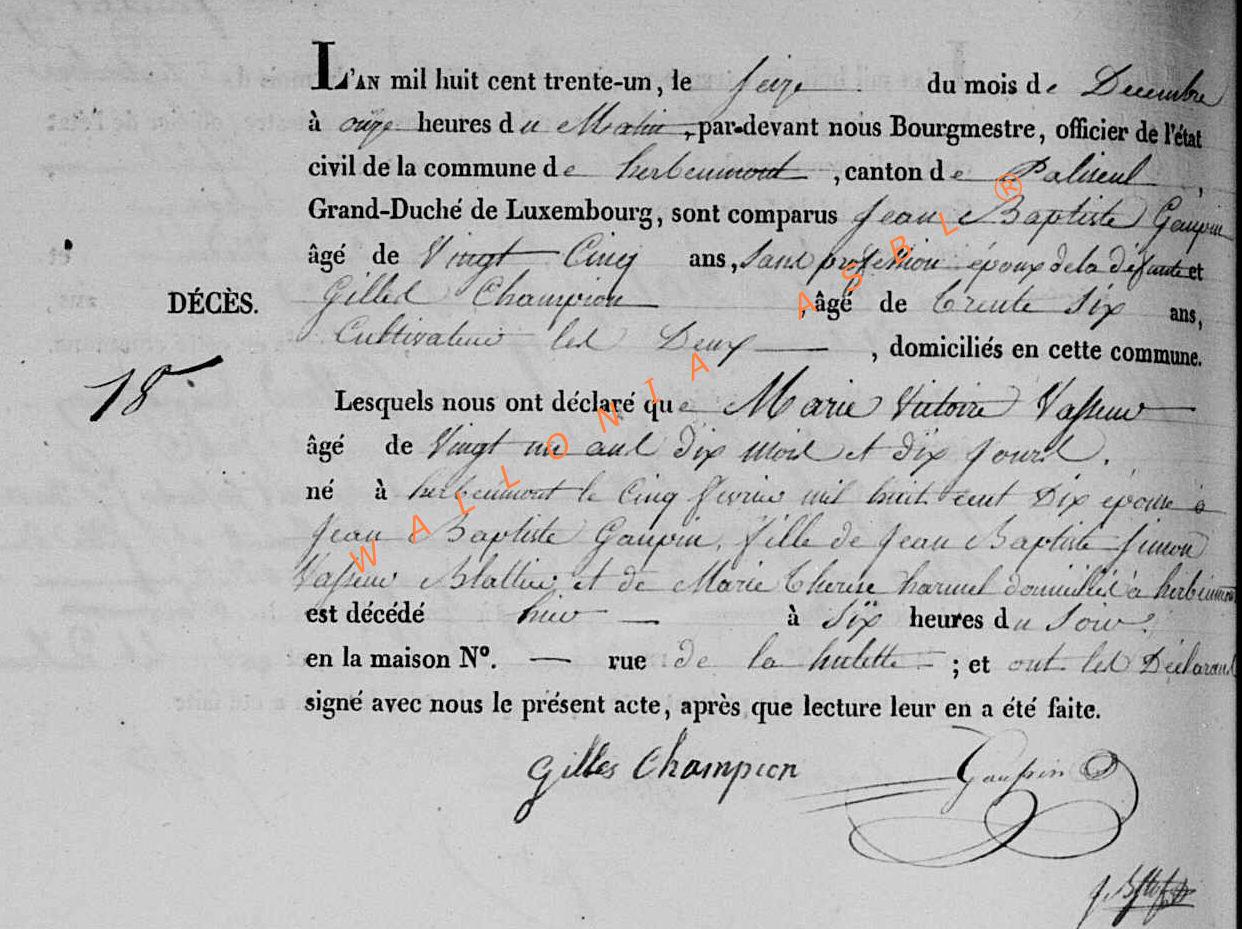 L'AN mil huit cent trente-un, le seize du mois de Decembre
à onze heures du Matin, par-devant nous Bourgmestre, officier de l'état
civil de la commune de herbeumont, canton de Paliseul,
Grand-Duché de Luxembourg, sont comparus Jean Baptiste Gaupin
âgé de Vingt Cinq ans, sans profession époux de la défunte et
DÉCÈS. Gilles Champion, âgé de trente six ans,
Cultivateur les Deux, domiciliés en cette commune.
18
Lesquels nous ont déclaré que Marie Victoire Vasseur
âgé de Vingt un ans dix mois et dix jours.
né à herbeumont le Cinq fevrier mil huit cent Dix epouse à
Jean Baptiste Gaupin, fille de Jean Baptiste Simon
Vasseur et de Marie therese harmel domiciliés à herbeumont
est décédé hier à six heures du soir.
en la maison N°. — rue de la hulette ; et ont les Déclarans
signé avec nous le présent acte, après que lecture leur en a été faite.
Gilles Champion Gaupin
WALLONIA ASBL ®